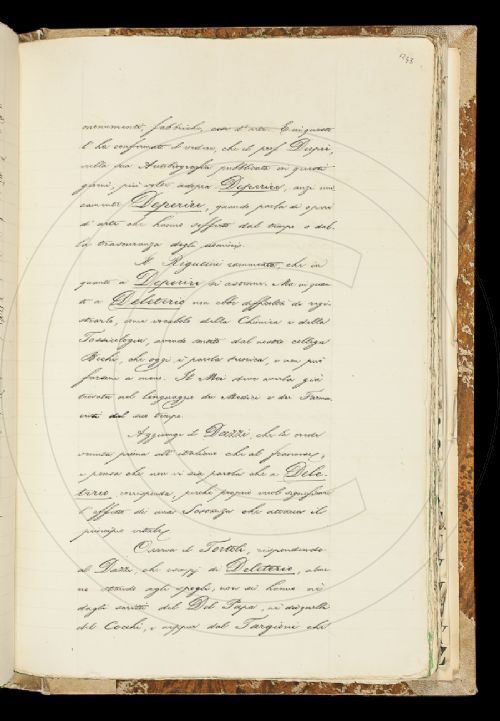 monumenti, fabbriche, cose d'arte. E in questo
l'ha confermato il vedere, che il prof. Duprè,
nella sua Autobiografia pubblicata in questi
giorni, più volte adopra Deperire, anzi uni
camente Deperire, quando parla di opere
d'arte che hanno sofferto dal tempo o dal
la trascuranza degli uomini.
Il Rigutini rammenta, che in
quanto a Deperire si astenne. Ma in quan
to a Deleterio non ebbe difficoltà di regi
strarlo, come vocabolo della Chimica e della
Tossicologia, avendo sentito dal nostro collega
Bechi, che oggi è parola tecnica, e non può
farsene a meno. Il Meini dice averla già
trovata nel linguaggio dei Medici e dei Farma
cisti del suo tempo.
Aggiunge il Dazzi che la crede
venuta prima all'italiano che al francese;
e pensa che non vi sia parola che a Dele-
terio corrisponda, perché proprio vuol significare
l'effetto di una sostanza che attacca il
principio vitale.
Osserva il Tortoli, rispondendo
al Dazzi che esempj di Deleterio, alme
no stando agli spogli, non si hanno nè
dagli scritti del Del Papa, nè da quelli
del Cocchi, e neppur dal Targioni che